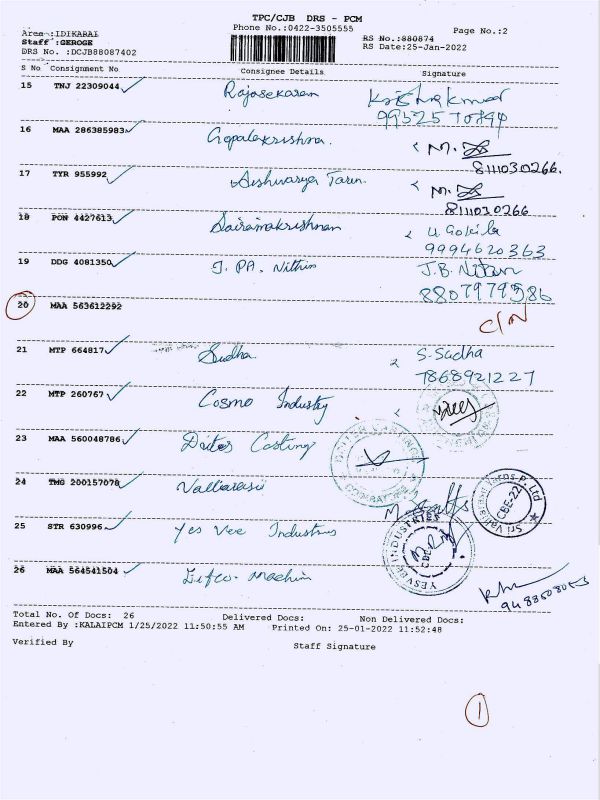 TPC/CJB DRS - PCM
Area :IDIKARAI Phone No.:0422-3505555 Page No.:2
Staff :GEROGE RS No.:880874
DRS No. :DCJB88087402 RS Date:25-Jan-2022
S No Consignment No Consignee Details Signature
15 TNJ 22309044 Rajasekaran Krishnakumar
9952570844
16 MAA 286385983 Gopalakrishna. M.
8111030266.
17 TYR 955992 Aishwarya Tarun. M.
8111030266
18 PON 4427613 Sairamakrishnan U Gokila
9994620363
19 DDG 4081350 J. PA. Nithin J.B. Nitin
8807979586
20 MAA 563612292
C/N
21 MTP 664817 Sudha S-Sudha
7868921227
22 MTP 260767 Cosmo Industry
23 MAA 560048786 Casting
COIMBATORE
24 TMG 200157078
Sri Valliarasi Yarns P. Ltd
CBE-22
25 STR 630996 Yes Vee Industries
YESVEE INDUSTRIES
CBE
26 MAA 564541504 Machin
9488508053
Total No. Of Docs: 26 Delivered Docs: Non Delivered Docs:
Entered By :KALAIPCM 1/25/2022 11:50:55 AM Printed On: 25-01-2022 11:52:48
Verified By Staff Signature
1